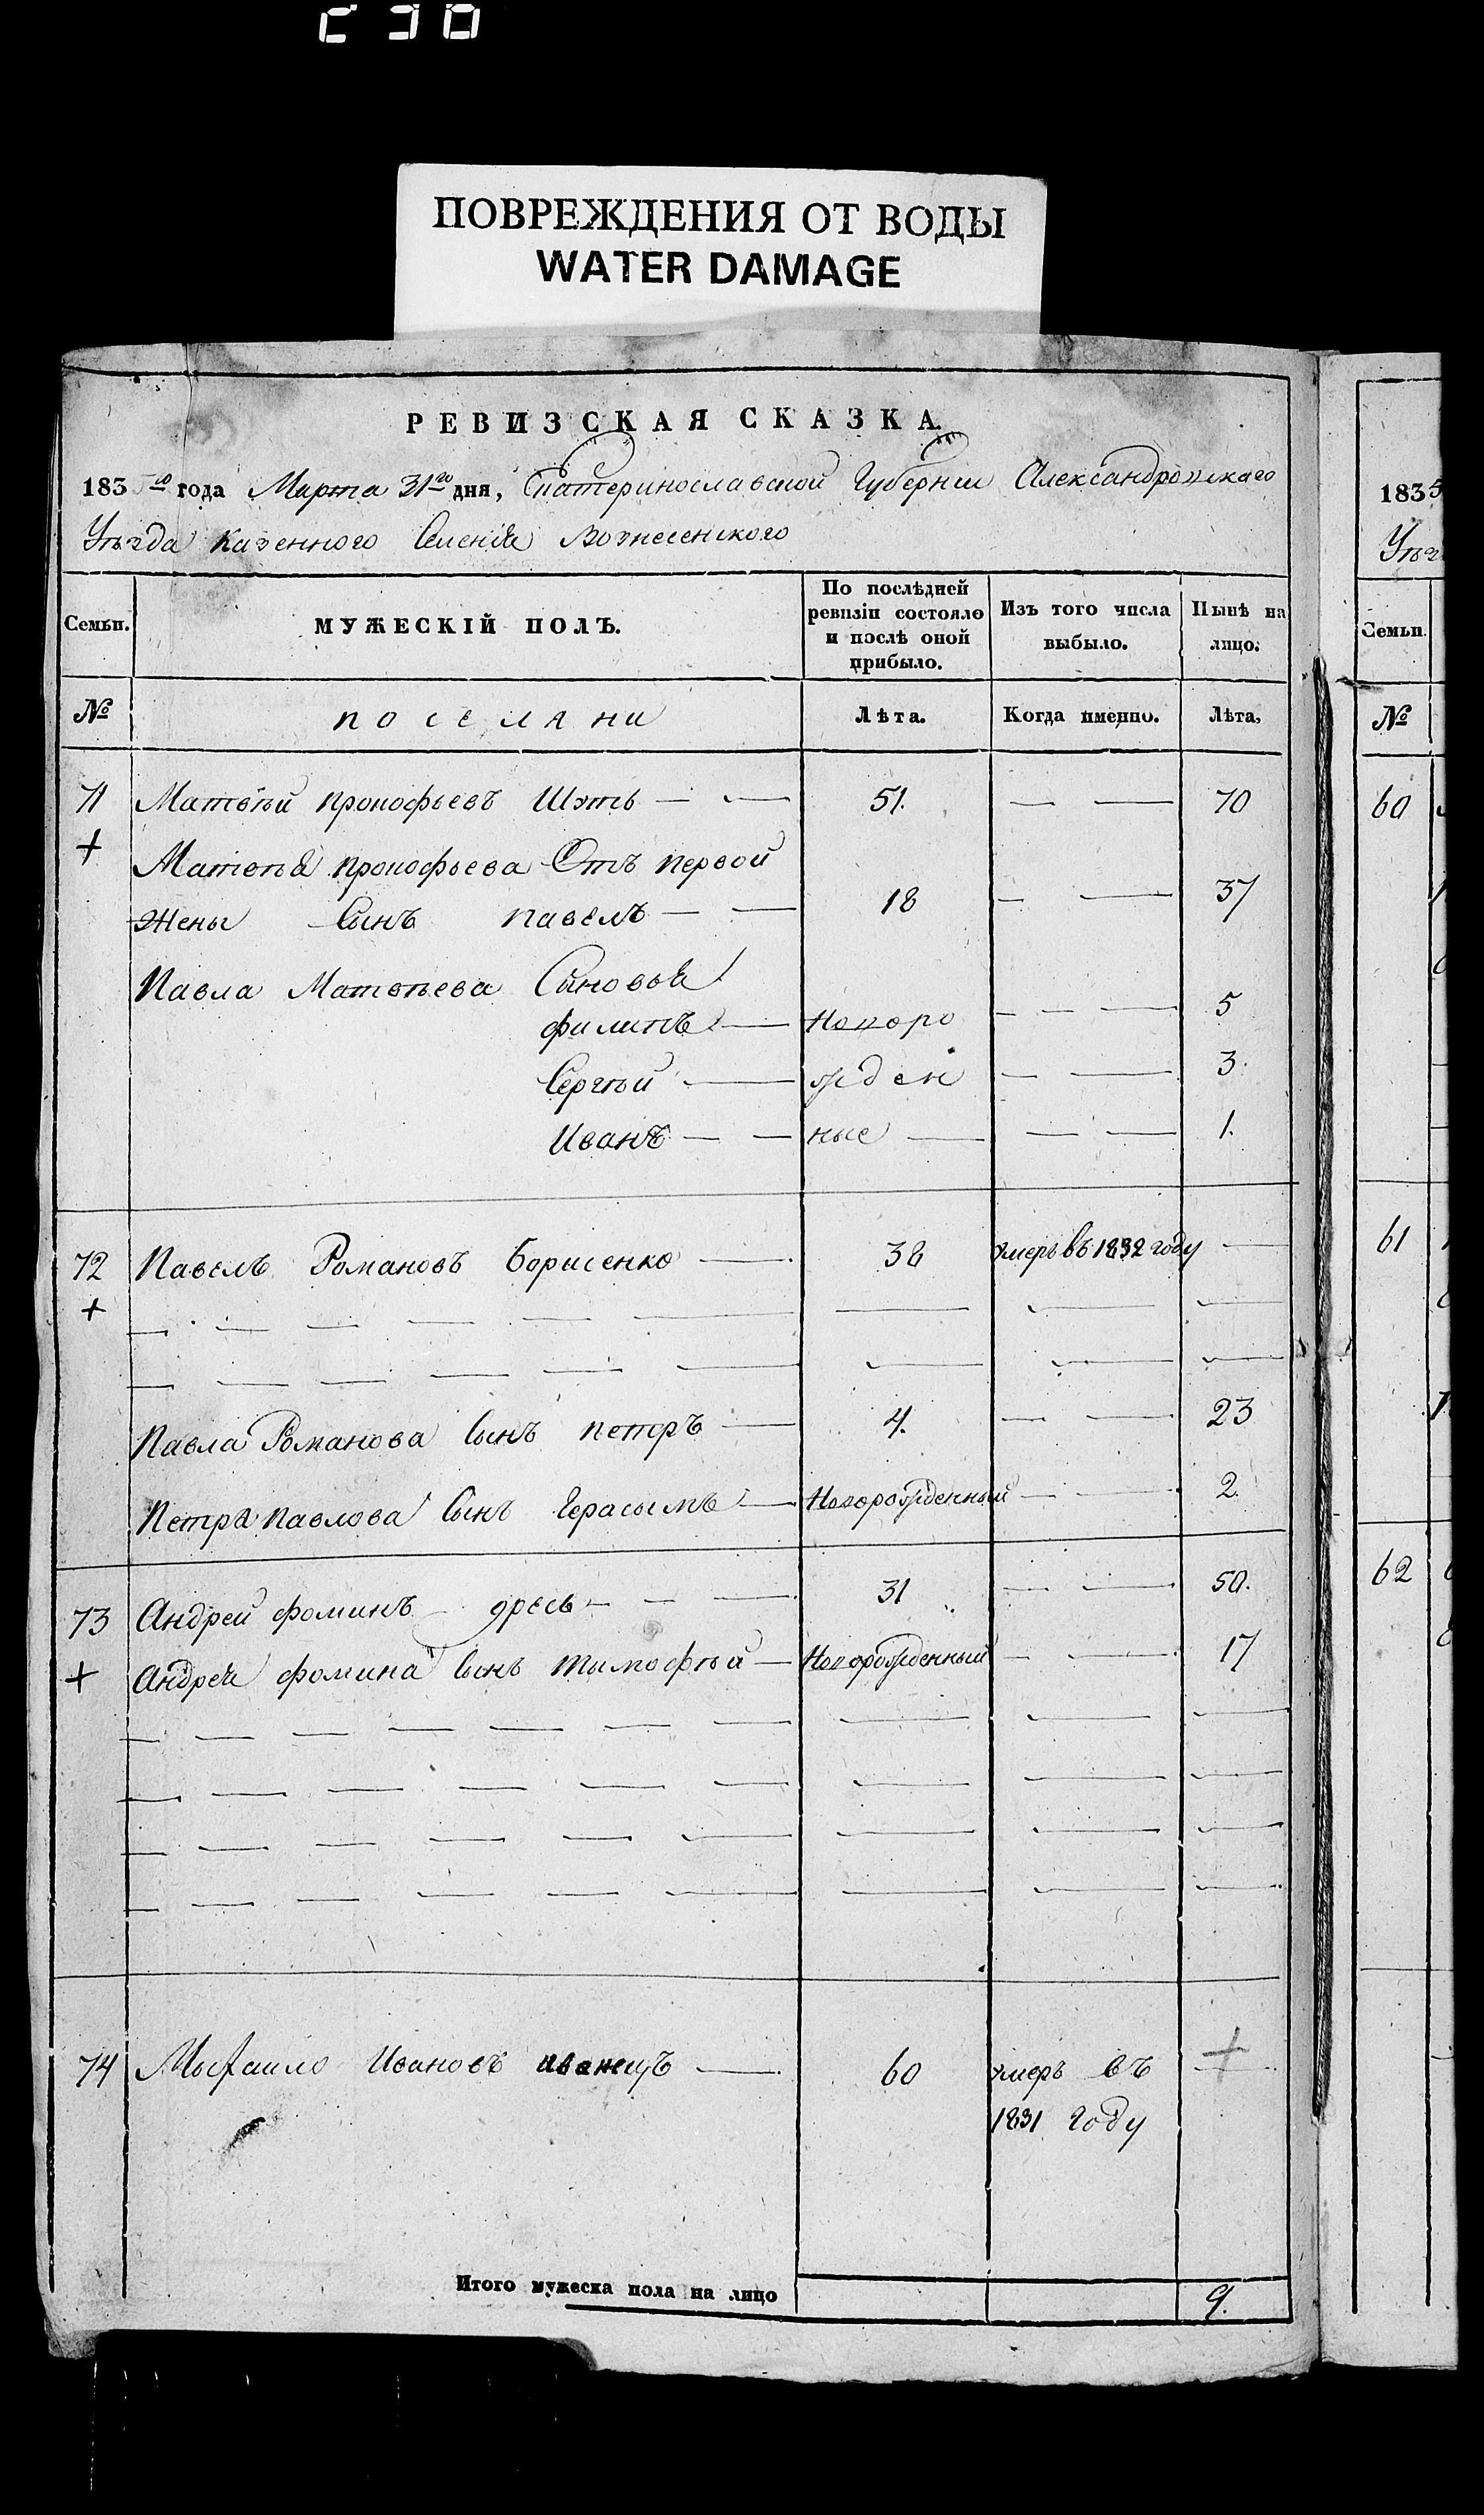 ПОВРЕЖДЕНИЯ ОТ ВОДЫ
WATER DAMAGE
РЕВИЗСКАЯ СКАЗКА
1835го года Марта 31го дня, Екатеринославской Губернии Александровскаго
Уѣзда казенного Селенія Вознесенского
Семьи.
МУЖЕСКІЙ ПОЛЪ.
По послѣдней ревизіи состояло и послѣ оной прибыло.
Изъ того числа выбыло.
Нынѣ на лицо.
№ поселяни Лѣта. Когда именно. Лѣта.
71 Матвѣй прокофьевъ Шуть — — 51. — — 70
+ Матвѣя прокофьева Отъ первой
жены Сынъ павелъ — — 18 — — 37
Павла Матвѣева Сыновья
филипъ — Новоро — — — 5
Сергѣй — жден — — 3.
Иванъ — — ные — — — 1.
72 Павелъ Романовъ Борисенко — 38 умеръ въ 1832 году —
+
Павла Романова Сынъ петръ — 4. — — 23
Петра павлова Сынъ Герасымъ — Новорожденный — — 2.
73 Андрей фоминъ — — — 31 — — 50.
+ Андрея фомина Сынъ тымофѣй — Новорожденный — — 17
74 Мыхаило Ивановъ иванецъ — 60 умеръ въ — +
1831 году
Итого мужеска пола на лицо 9.
1835
Уѣз
Семьи.
№
60
61
62